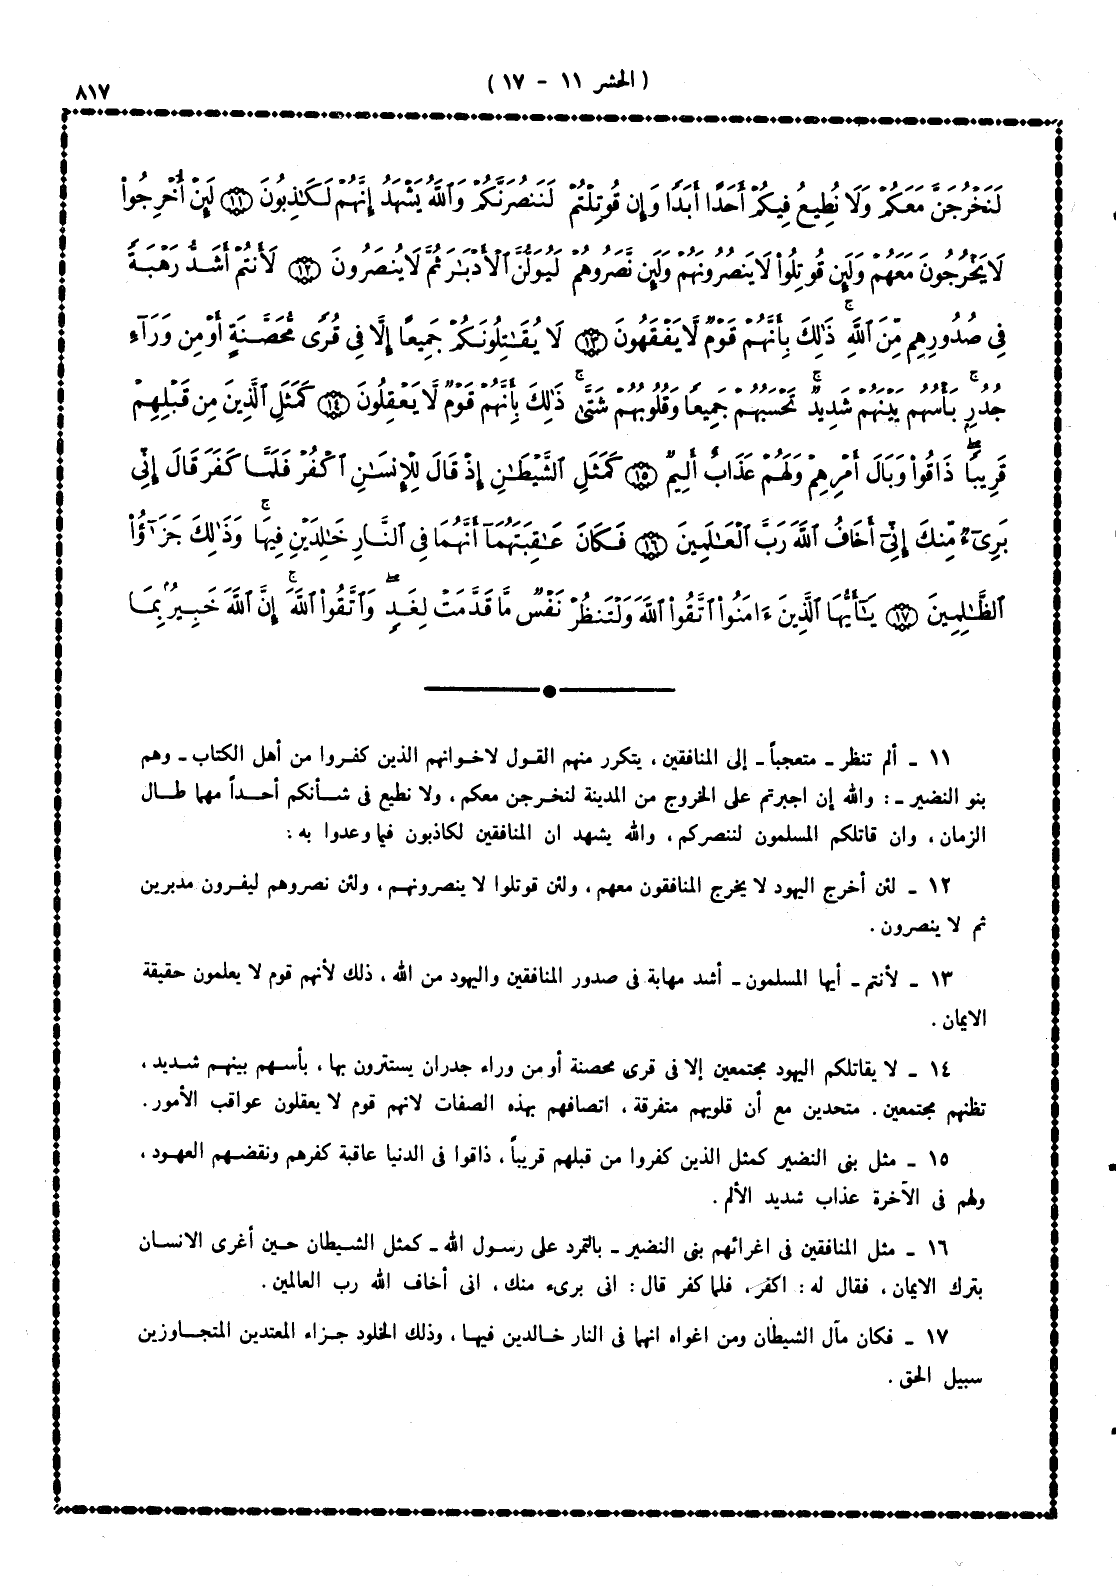 ( الحشر ١١ - ١٧ )
٨١٧
لَنَخْرُجَنَّ مَعَكُمْ وَلَا نُطِيعُ فِيكُمْ أَحَدًا أَبَدًا وَإِن قُوتِلْتُمْ لَنَنصُرَنَّكُمْ وَٱللَّهُ يَشْهَدُ إِنَّهُمْ لَكَـٰذِبُونَ ١١ لَئِنْ أُخْرِجُوا۟
لَا يَخْرُجُونَ مَعَهُمْ وَلَئِن قُوتِلُوا۟ لَا يَنصُرُونَهُمْ وَلَئِن نَّصَرُوهُمْ لَيُوَلُّنَّ ٱلْأَدْبَـٰرَ ثُمَّ لَا يُنصَرُونَ ١٢ لَأَنتُمْ أَشَدُّ رَهْبَةً
فِى صُدُورِهِم مِّنَ ٱللَّهِ ۚ ذَٰلِكَ بِأَنَّهُمْ قَوْمٌ لَّا يَفْقَهُونَ ١٣ لَا يُقَـٰتِلُونَكُمْ جَمِيعًا إِلَّا فِى قُرًى مُّحَصَّنَةٍ أَوْ مِن وَرَآءِ
جُدُرٍۭ ۚ بَأْسُهُم بَيْنَهُمْ شَدِيدٌ ۚ تَحْسَبُهُمْ جَمِيعًا وَقُلُوبُهُمْ شَتَّىٰ ۚ ذَٰلِكَ بِأَنَّهُمْ قَوْمٌ لَّا يَعْقِلُونَ ١٤ كَمَثَلِ ٱلَّذِينَ مِن قَبْلِهِمْ
قَرِيبًا ۖ ذَاقُوا۟ وَبَالَ أَمْرِهِمْ وَلَهُمْ عَذَابٌ أَلِيمٌ ١٥ كَمَثَلِ ٱلشَّيْطَـٰنِ إِذْ قَالَ لِلْإِنسَـٰنِ ٱكْفُرْ فَلَمَّا كَفَرَ قَالَ إِنِّى
بَرِىٓءٌ مِّنكَ إِنِّىٓ أَخَافُ ٱللَّهَ رَبَّ ٱلْعَـٰلَمِينَ ١٦ فَكَانَ عَـٰقِبَتَهُمَآ أَنَّهُمَا فِى ٱلنَّارِ خَـٰلِدَيْنِ فِيهَا ۚ وَذَٰلِكَ جَزَٰٓؤُا۟
ٱلظَّـٰلِمِينَ ١٧ يَـٰٓأَيُّهَا ٱلَّذِينَ ءَامَنُوا۟ ٱتَّقُوا۟ ٱللَّهَ وَلْتَنظُرْ نَفْسٌ مَّا قَدَّمَتْ لِغَدٍ ۖ وَٱتَّقُوا۟ ٱللَّهَ ۚ إِنَّ ٱللَّهَ خَبِيرٌۢ بِمَا
١١ - ألم تنظر - متعجباً - إلى المنافقين ، يتكرر منهم القول لاخوانهم الذين كفروا من أهل الكتاب - وهم
بنو النضير - : والله إن اجبرتم على الخروج من المدينة لنخرجن معكم ، ولا نطيع فى شأنكم أحداً مهما طال
الزمان ، وان قاتلكم المسلمون لننصركم ، والله يشهد ان المنافقين لكاذبون فيما وعدوا به :
١٢ - لئن أخرج اليهود لا يخرج المنافقون معهم ، ولئن قوتلوا لا ينصرونهم ، ولئن نصروهم ليفرون مدبرين
ثم لا ينصرون .
١٣ - لأنتم - أيها المسلمون - أشد مهابة فى صدور المنافقين واليهود من الله ، ذلك لأنهم قوم لا يعلمون حقيقة
الايمان .
١٤ - لا يقاتلكم اليهود مجتمعين إلا فى قرى محصنة أو من وراء جدران يستترون بها ، بأسهم بينهم شديد ،
تظنهم مجتمعين . متحدين مع أن قلوبهم متفرقة ، اتصافهم بهذه الصفات لانهم قوم لا يعقلون عواقب الأمور .
١٥ - مثل بنى النضير كمثل الذين كفروا من قبلهم قريباً ، ذاقوا فى الدنيا عاقبة كفرهم ونقضهم العهود ،
ولهم فى الآخرة عذاب شديد الألم .
١٦ - مثل المنافقين فى اغرائهم بنى النضير - بالتمرد على رسول الله - كمثل الشيطان حين أغرى الانسان
بترك الايمان ، فقال له : اكفر ، فلما كفر قال : انى برىء منك ، انى أخاف الله رب العالمين .
١٧ - فكان مآل الشيطان ومن اغواه انهما فى النار خالدين فيها ، وذلك الخلود جزاء المعتدين المتجاوزين
سبيل الحق .